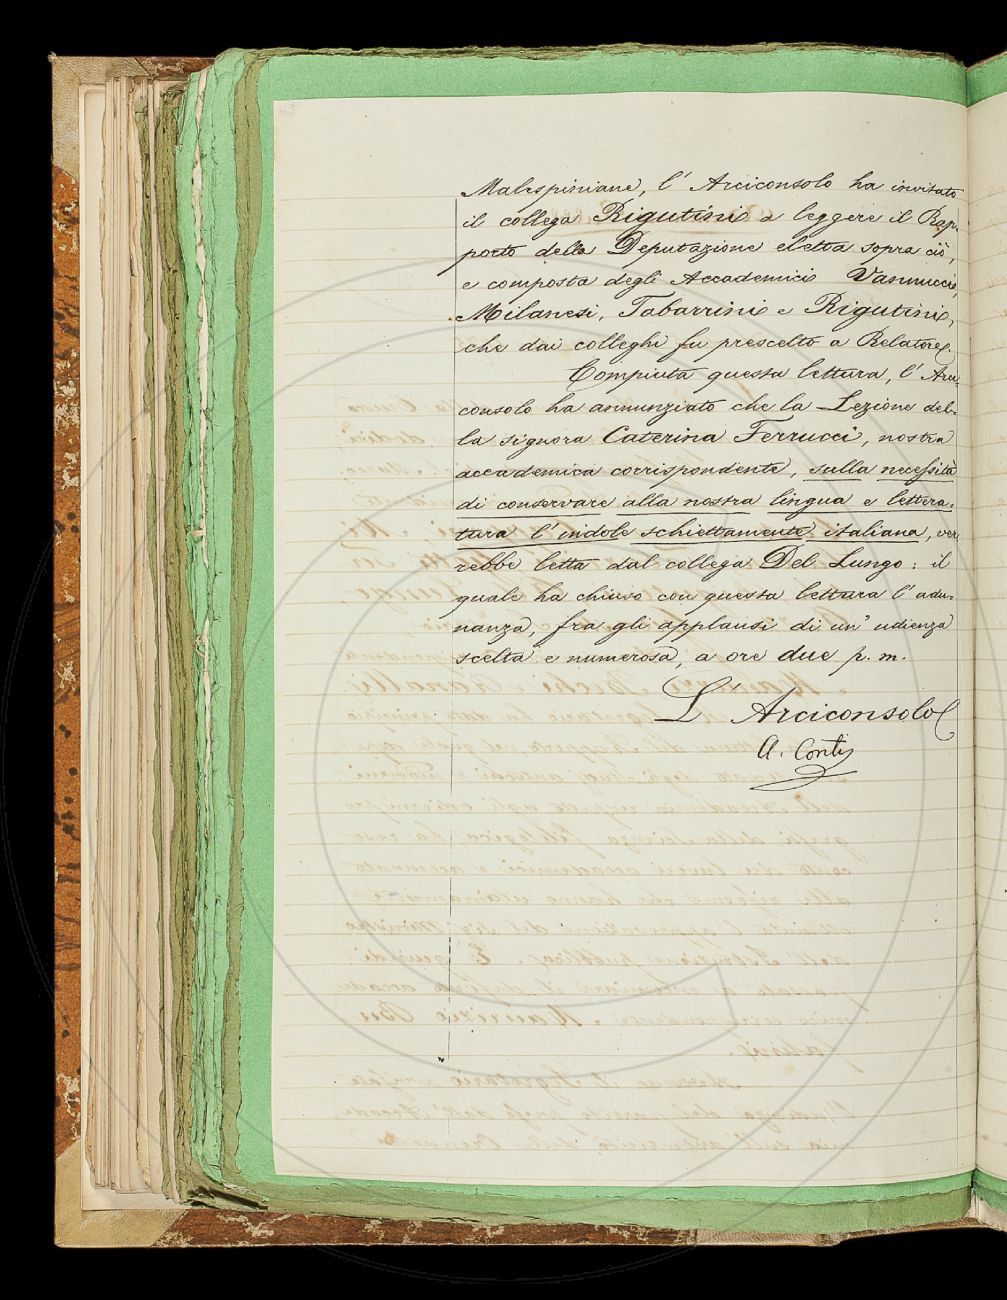 Malespiniane, l' Arciconsolo ha invitato
il collega Rigutini a leggere il Rap-
porto della Deputazione eletta sopra ciò,
e composta degli Accademici Vannucci,
Milanesi, Tabarrini e Rigutini,
che dai colleghi fu prescelto a Relatore.
Compiuta questa lettura, l' Arci-
consolo ha annunziato che la Lezione del-
la signora Caterina Ferrucci, nostra
accademica corrispondente, sulla necessità
di conservare alla nostra lingua e lettera-
tura l' indole schiettamente italiana, ver-
rebbe letta dal collega Del Lungo: il
quale ha chiuso con questa lettura l' adu-
nanza, fra gli applausi di un' udienza
scelta e numerosa, a ore due p. m.
L' Arciconsolo
A. Conti